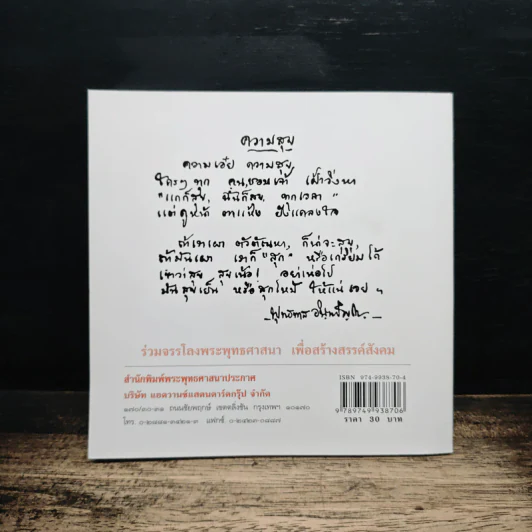 ความสุข
ความเอ๋ย ความสุข,
ใครๆ ทุก คน, ชอบเจ้า เฝ้าวิ่งหา
"แกก็สุข, ฉันก็สุข, ทุกเวลา"
แต่ดูหน้า ตาแห้ง ยังแคลงใจ
ถ้าเราเผา ตัวตัณหา, ก็น่าจะสุข,
ถ้ามันเผา เราก็ "สุก" หรือเกรียมได้
เขาว่าสุข สุขเน้อ! อย่าเห่อไป
มันสุขเย็น หรือสุกไหม้ ให้แน่เอย ฯ
พุทธทาส อินทปัญโญ
ร่วมจรรโลงพระพุทธศาสนา เพื่อสร้างสรรค์สังคม
สำนักพิมพ์พระพุทธศาสนาประกาศ
บริษัท แอดวานซ์แสตนดาร์ดกรุ๊ป จำกัด
ถนนชัยพฤกษ์ เขตตลิ่งชัน กรุงเทพฯ ๑๐๑๗๐
โทร. แฟกซ์.
ISBN 974-9938-70-4
9 789749 938706
ราคา 30 บาท